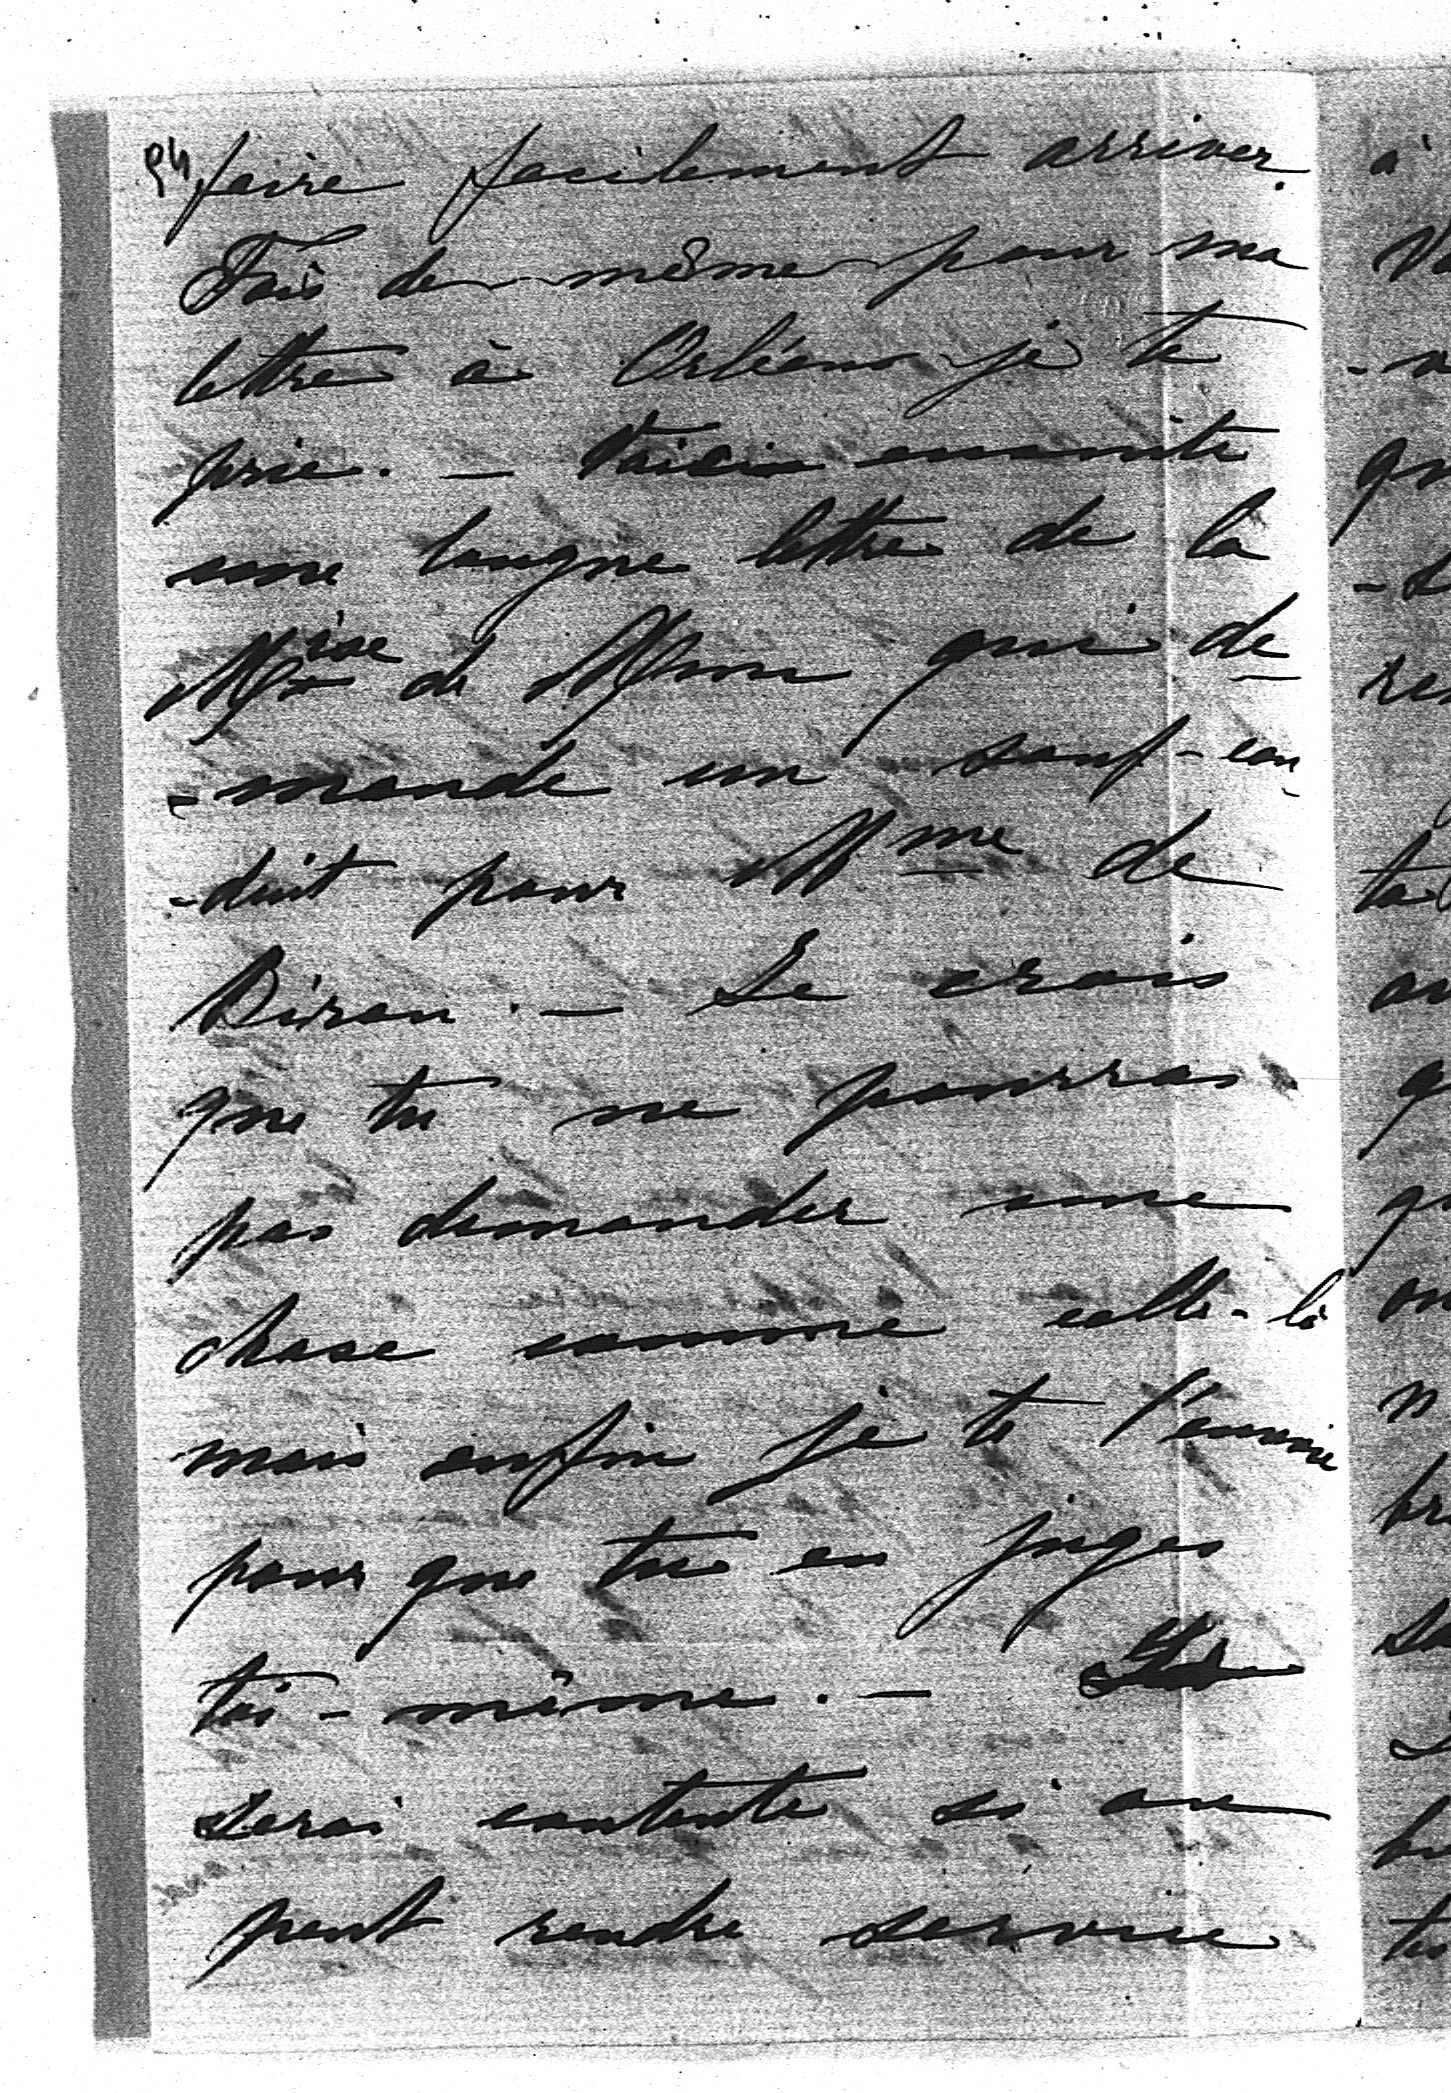 faire facilement arriver.
Fais de même pour ma
lettre à Orléans je te
prie. – Voici ensuite
une longue lettre de la
Mise de Mun qui de
-mande un sauf-con
-duit pour Mme de
Biron. – Je crois
que tu ne pourras
pas demander une
chose comme celle-là
mais enfin je te l'envoie
pour que tu en juges
toi-même. – Je
serai contente si on
peut rendre service